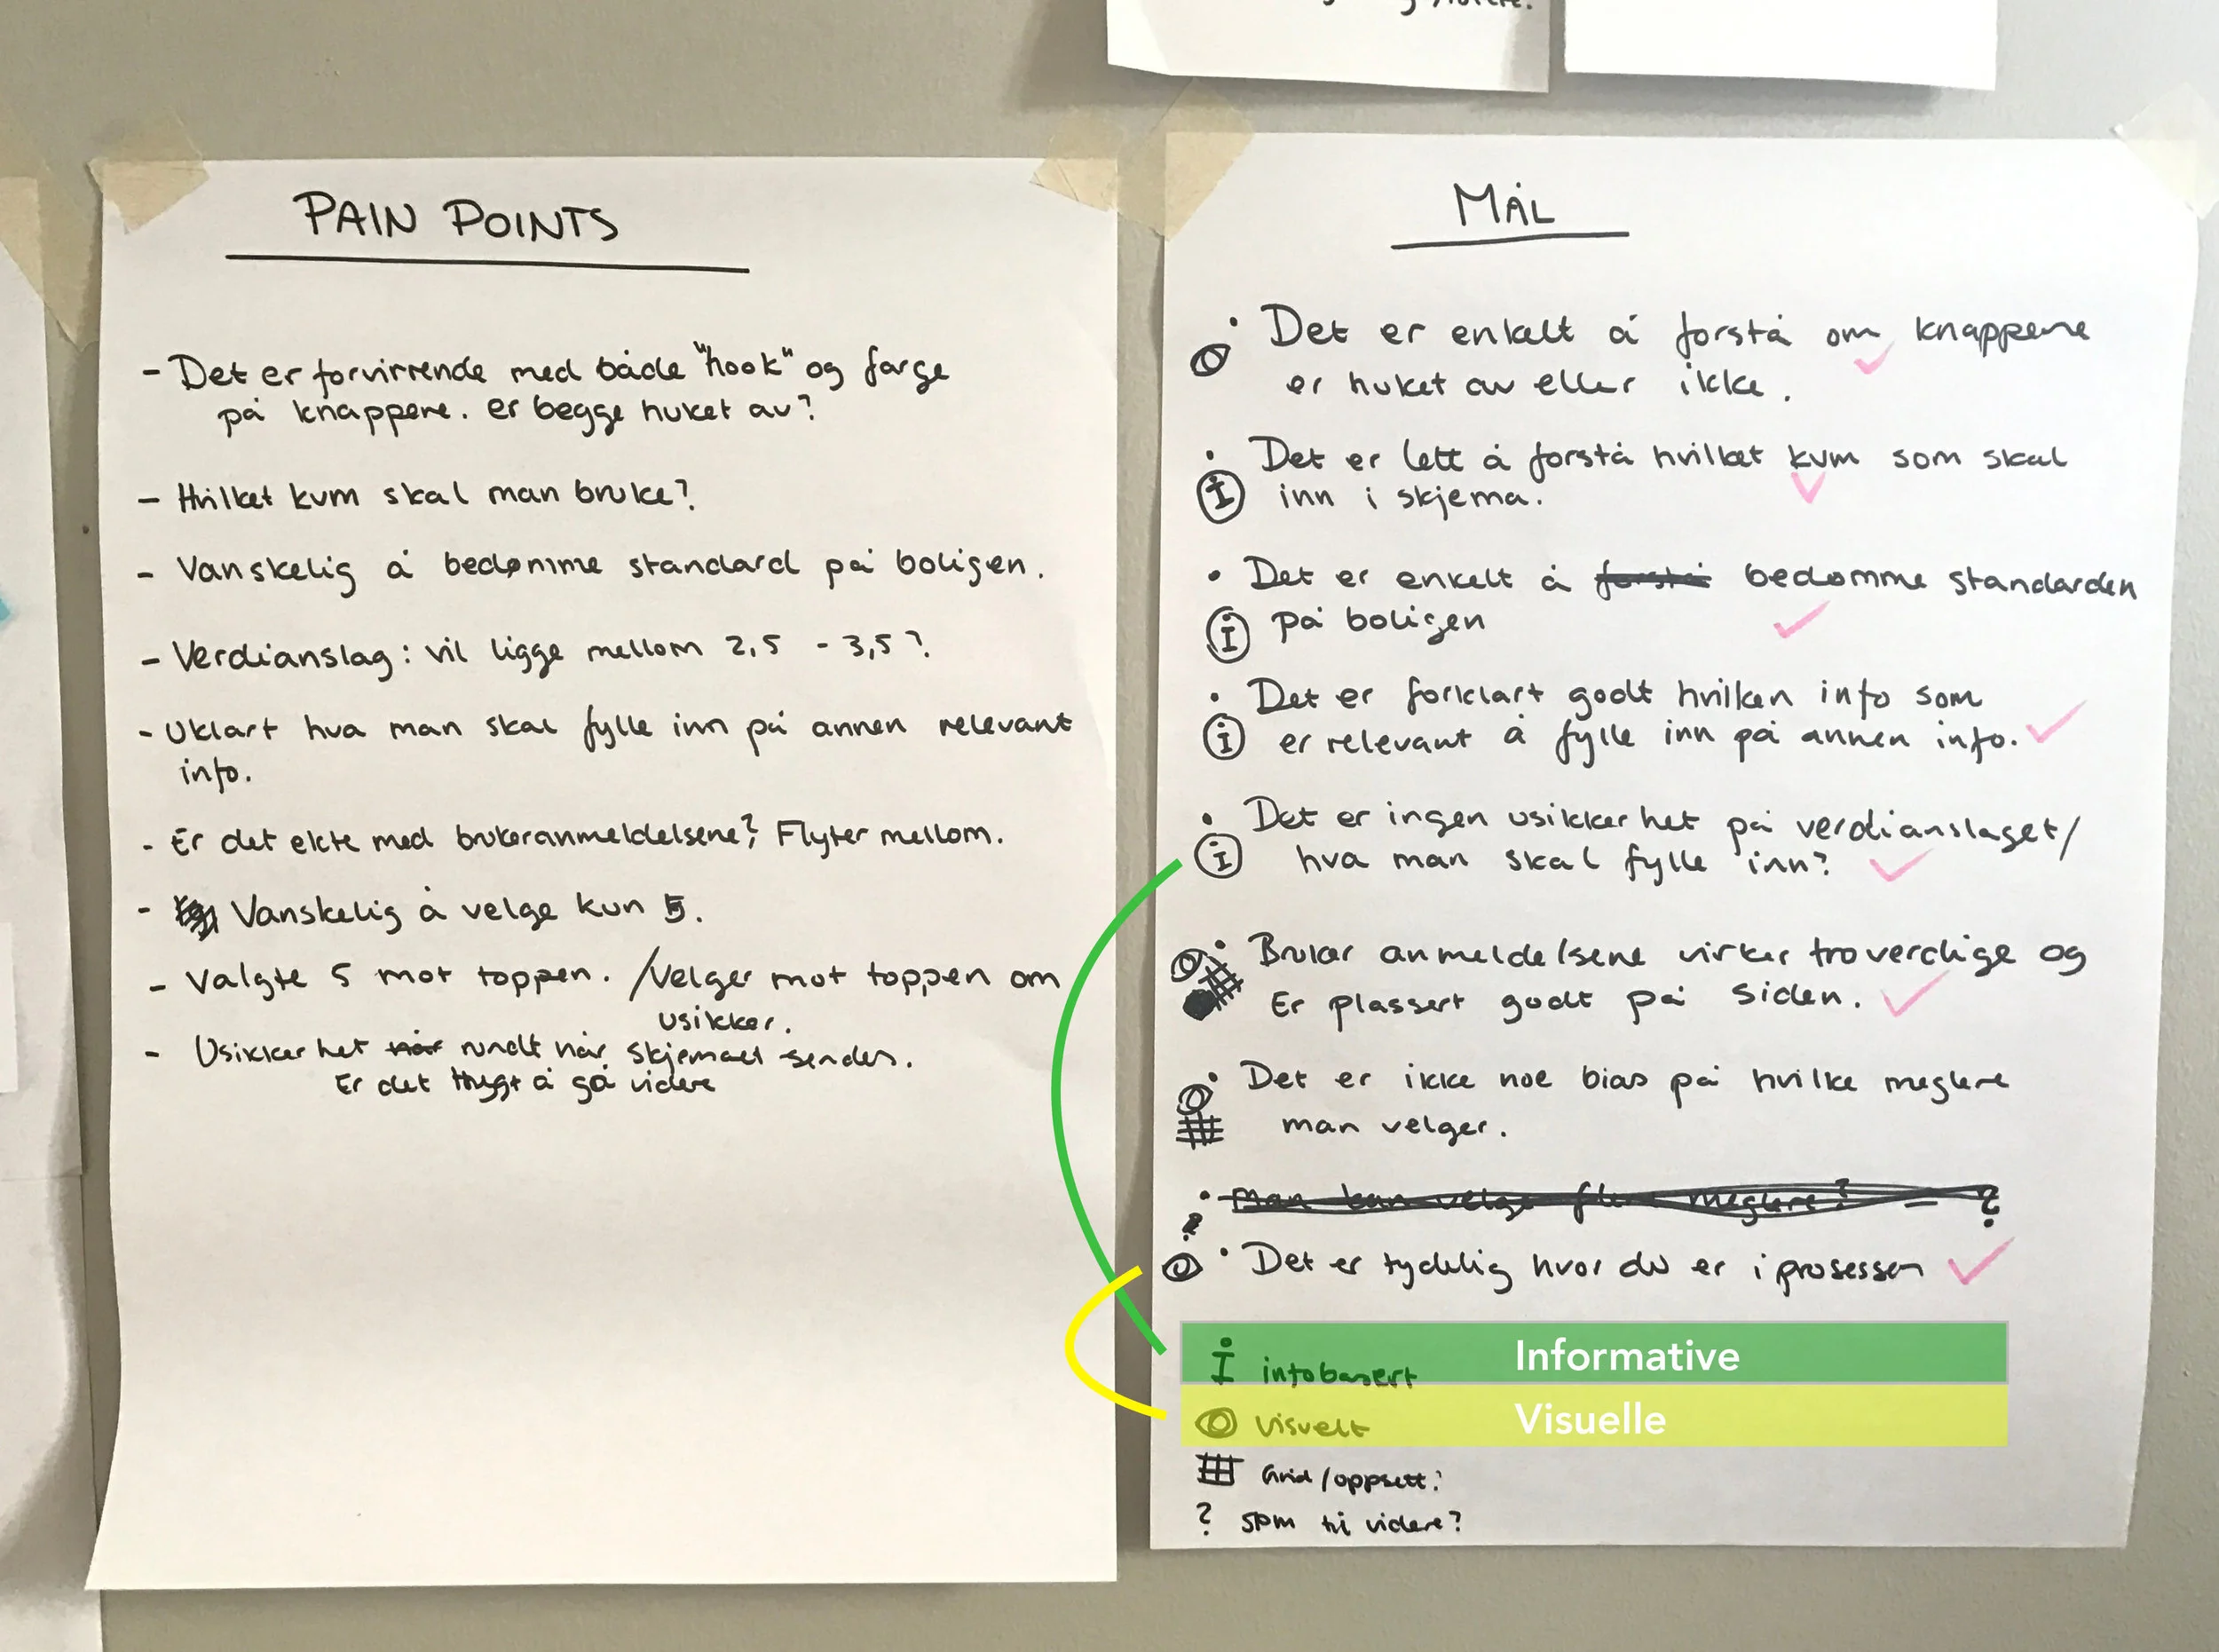 PAIN POINTS
- Det er forvirrende med både "hook" og farge
på knappene. er begge huket av?
- Hvilket kvm skal man bruke?
- Vanskelig å bedømme standard på boligen.
- Verdianslag: vil ligge mellom 2,5 - 3,5?
- Uklart hva man skal fylle inn på annen relevant
info.
- Er det ekte med brukeranmeldelsene? Flyter mellom.
- Vanskelig å velge kun 5.
- Valgte 5 mot toppen. /Velger mot toppen om
usikker.
- Usikkerhet når rundt når skjemaet sendes.
Er det trygt å gå videre
MÅL
• Det er enkelt å forstå om knappene
er huket av eller ikke.
• Det er lett å forstå hvilket kvm som skal
i inn i skjema.
• Det er enkelt å forstå bedømme standarden
i på boligen
• Det er forklart godt hvilken info som
i er relevant å fylle inn på annen info.
• Det er ingen usikkerhet på verdianslaget/
i hva man skal fylle inn?
• Bruker anmeldelsene virker troverdige og
Er plassert godt på siden.
• Det er ikke noe bias på hvilke meglere
man velger.
• Man kan velge flere meglere? - ?
?
• Det er tydelig hvor du er i prosessen
i infobasert Informative
visuelt Visuelle
Grid/oppsett?
? spm til videre?